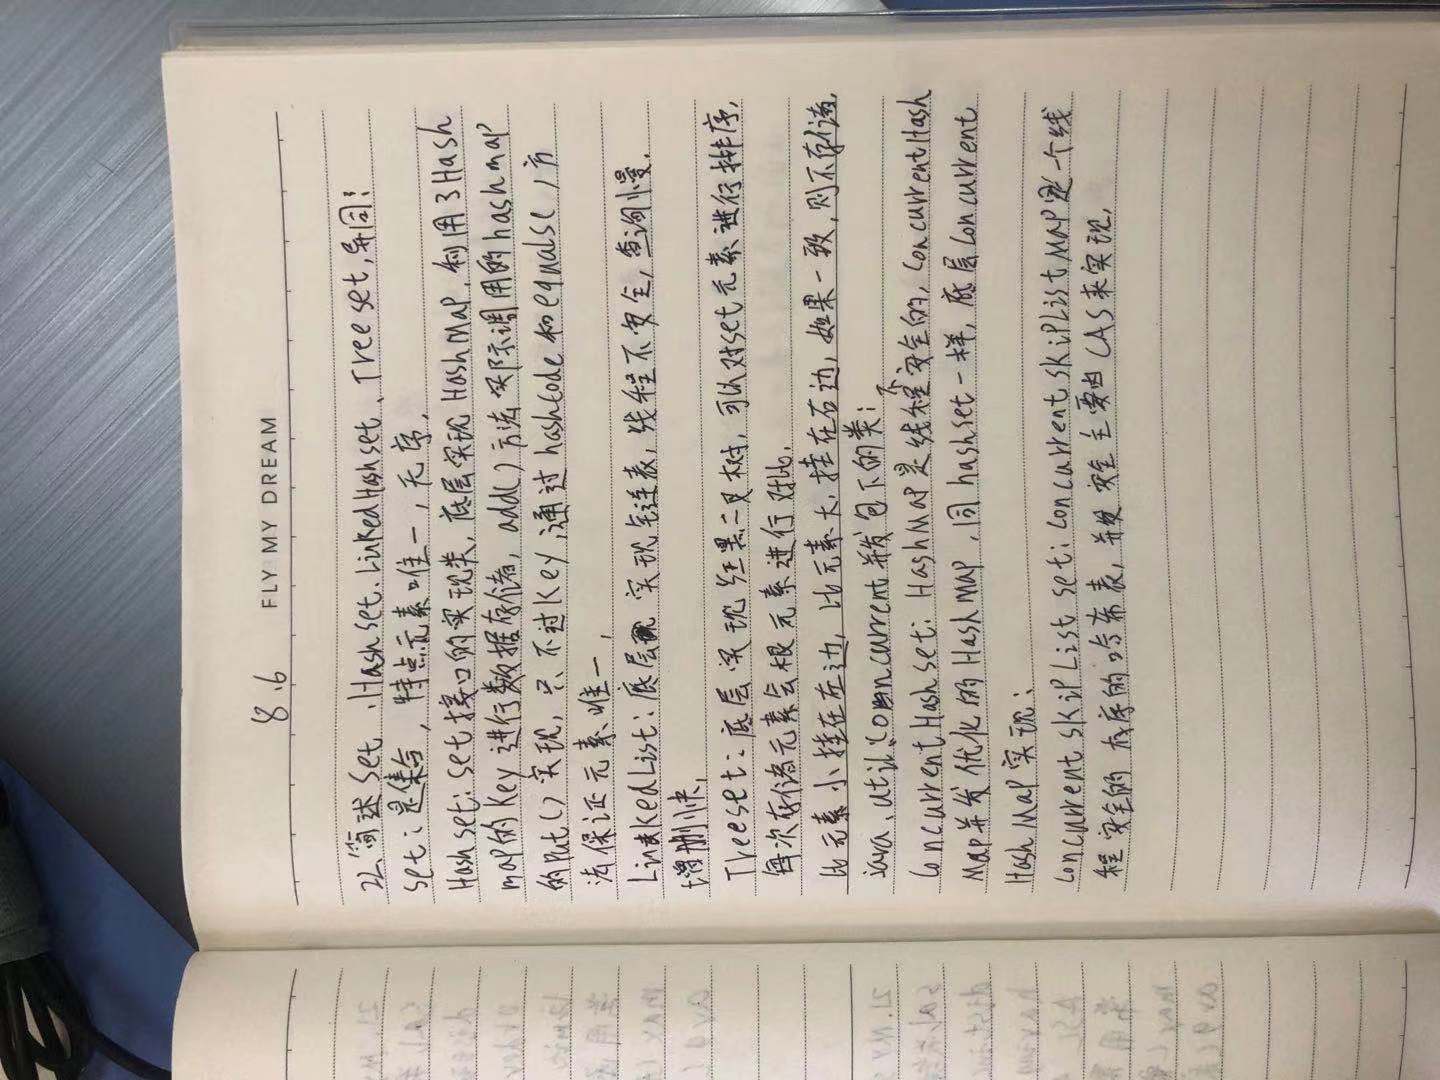 FLY MY DREAM
8.6
22、简述Set、Hashset、LinkedHashset、Treeset,异同:
set:是集合,特点元素唯一,无序,
Hashset:set接口的实现类,底层实现HashMap,利用了Hash
map的Key进行数据存储,add()方法实际调用的hashmap
的put()实现,只不过Key通过hashcode和equalse()方
法保证元素唯一,
LinkedList:底层实现链表,线程不安全,查询慢,
增删快,
Treeset:底层实现红黑二叉树,可以对set元素进行排序,
每次存储元素会根元素进行对比,
比元素小挂在左边,比元素大,挂在右边,如果一致,则不存储,
java.util.concurrent并发包下的类:
ConcurrentHashset:HashMap是线程不安全的,ConcurrentHash
Map并发优化的HashMap,同hashset一样,底层Concurrent
HashMap实现:
Concurrentskiplist set:ConcurrentskiplistMap是一个线
程安全的有序的哈希表,并发安全主要由CAS来实现,